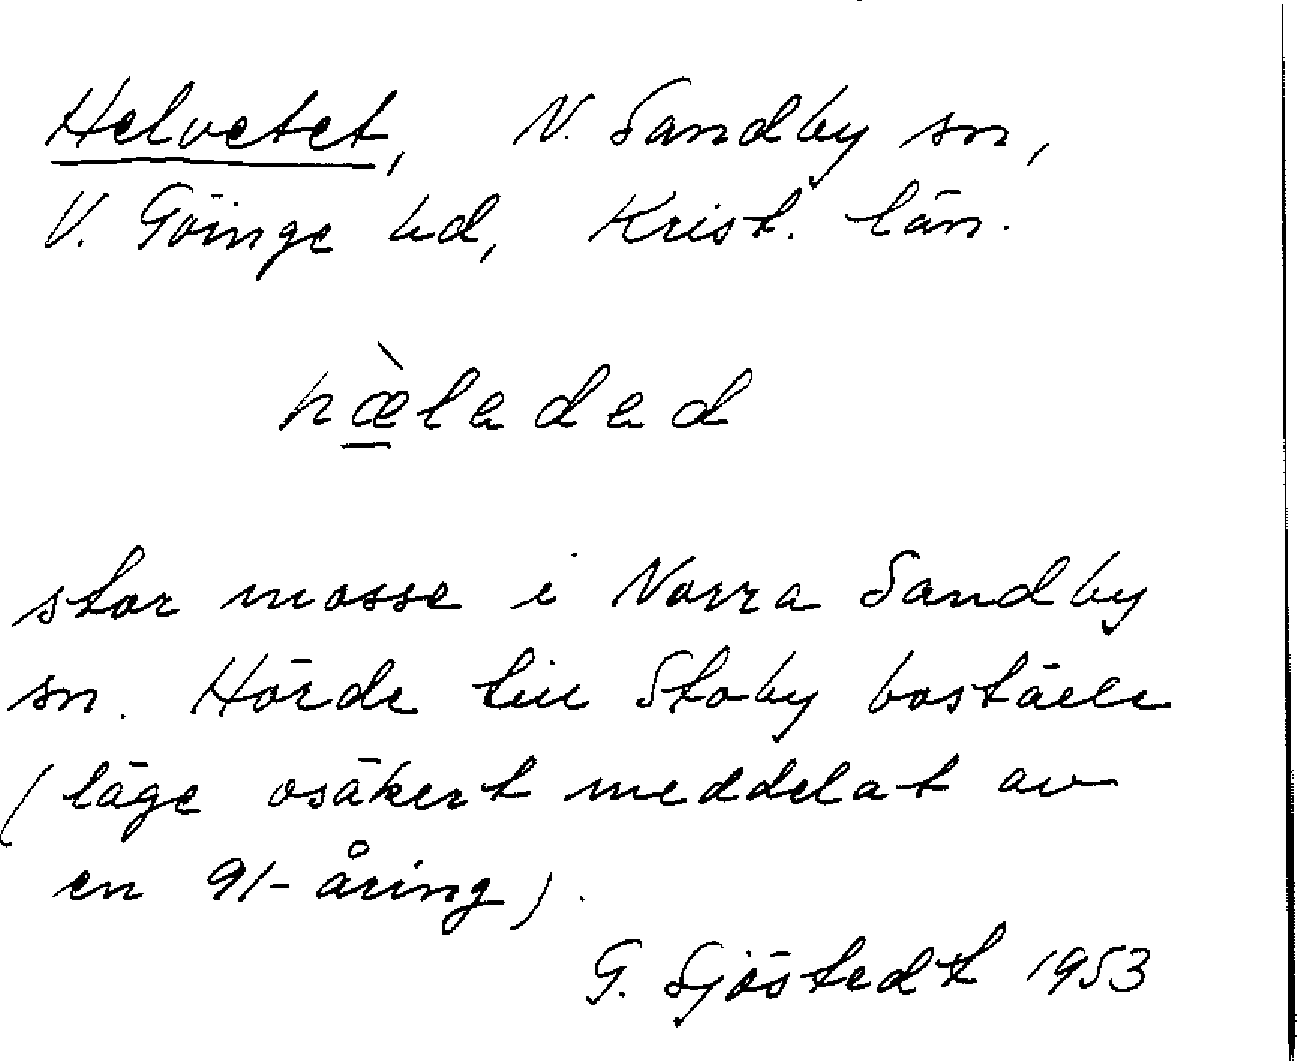 Helvetet, N. Sandby sn,
V. Göinge hd, Krist. län.
hæ̀ladad
stor mosse i Norra Sandby
sn. Hörde till Stoby boställe
(läge osäkert meddelat av
en 91-åring).
G. Sjöstedt 1953